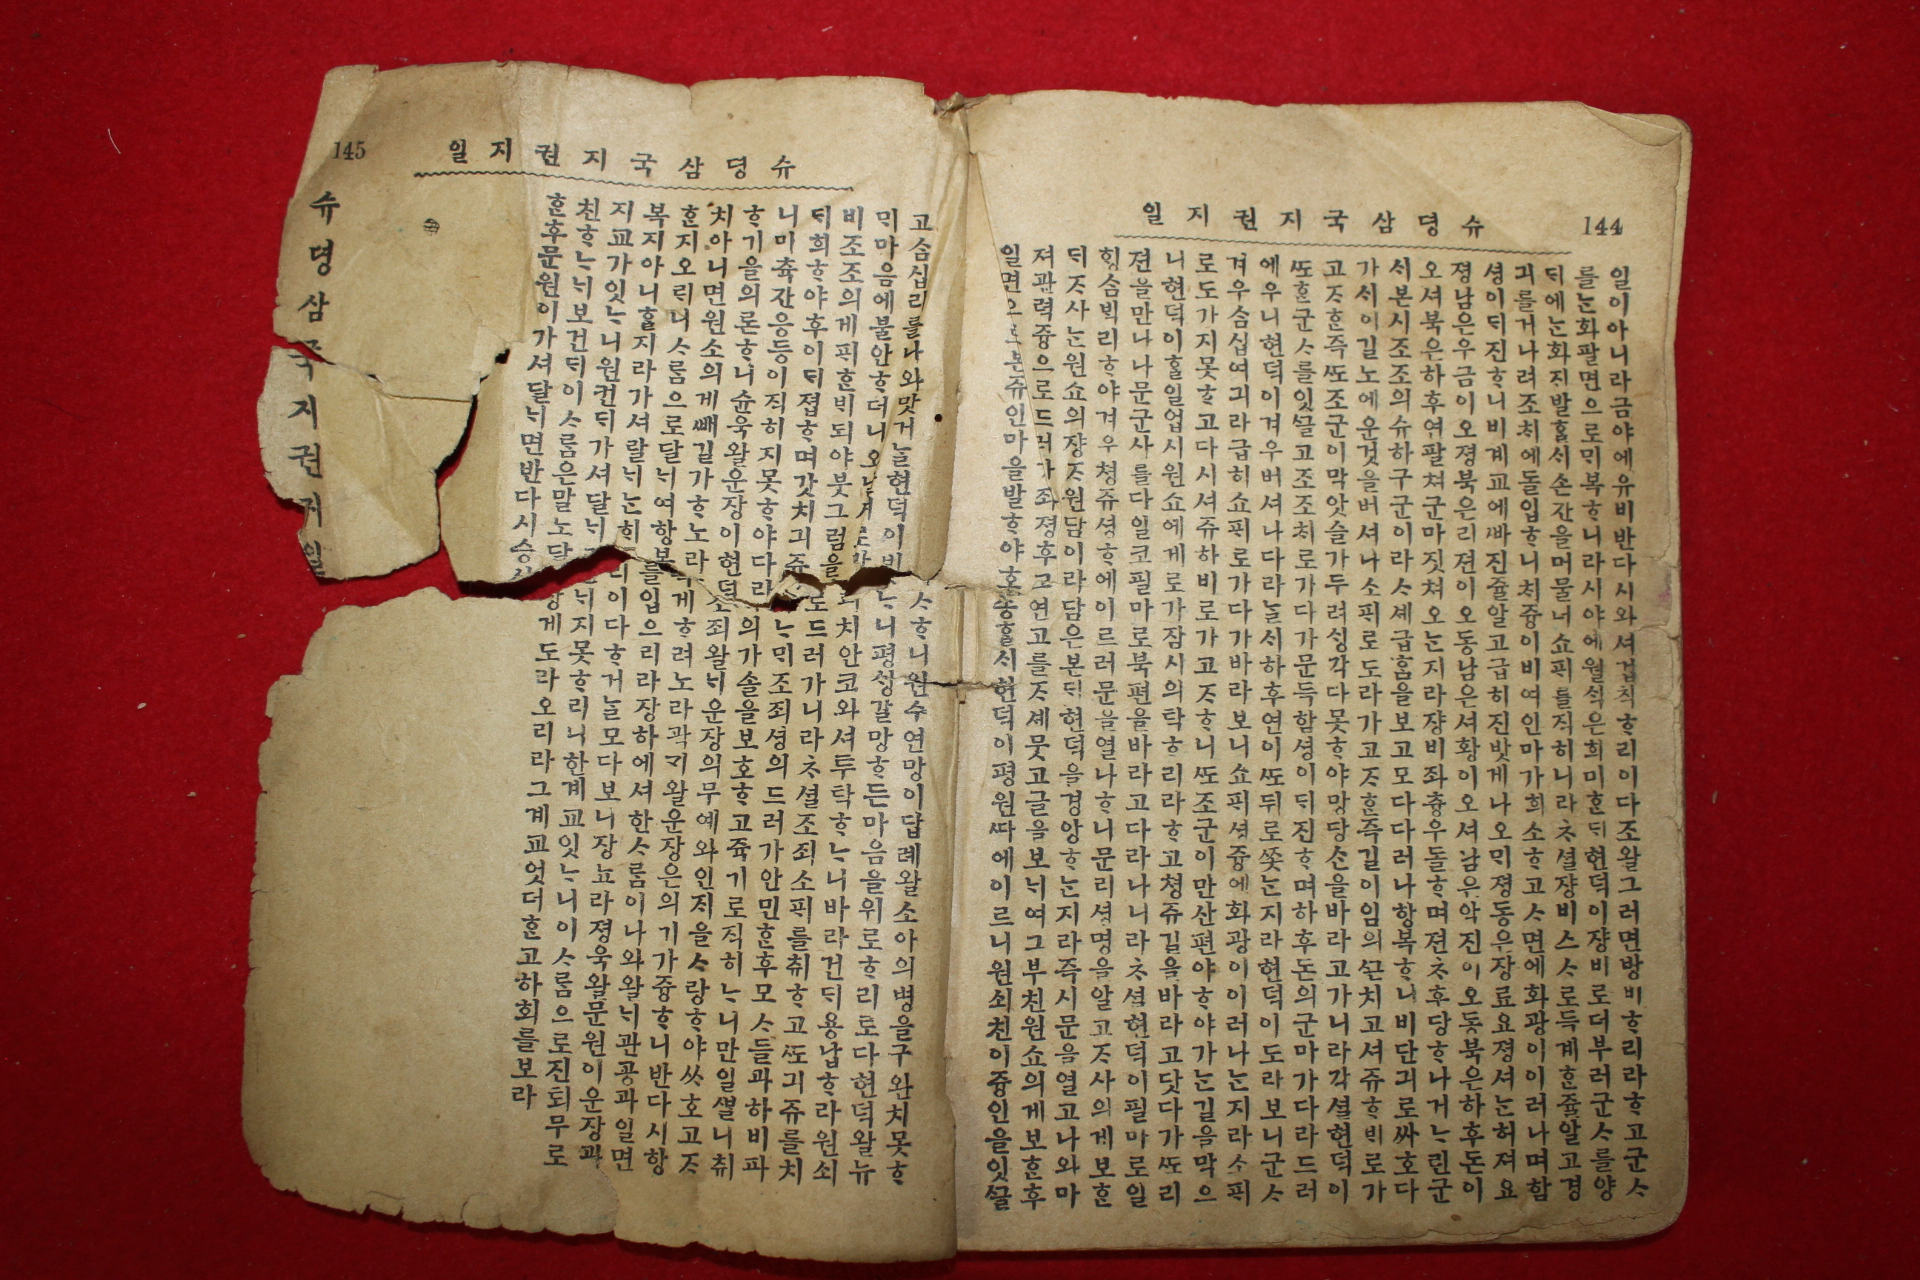 144
슈뎡삼국지권지일
일이아니라금야에유비반다시와셔겁칙ᄒᆞ리이다조왈그러면방비ᄒᆞ리라ᄒᆞ고군ᄉᆞ
를ᄂᆞᆫ화팔면으로ᄆᆡ복ᄒᆞ니라시야에월ᄉᆡᆨ은희미ᄒᆞᆫᄃᆡ현덕이쟝비로더부러군ᄉᆞ를양
ᄃᆡ에ᄂᆞᆫ화진발ᄒᆞᆯᄉᆡ손건을머물너쇼ᄑᆡ를직히니라ᄎᆞ셜쟝비스ᄉᆞ로득계ᄒᆞᆫ쥴알고경
긔를거나려조ᄎᆡ에돌입ᄒᆞ니ᄎᆡ즁이비여인마가희소ᄒᆞ고ᄉᆞ면에화광이이러나며함
셩이ᄃᆡ진ᄒᆞ니비계교에ᄲᅡ진쥴알고급히진밧게나오ᄆᆡ졍동은장료요졍셔ᄂᆞᆫ허져요
졍남은우금이오졍북은리젼이오동남은셔황이오셔남은악진이오동북은하후돈이
오셔북은하후연팔쳐군마짓쳐오ᄂᆞᆫ지라쟝비좌츙우돌ᄒᆞ며젼ᄎᆞ후당ᄒᆞ나거ᄂᆞ린군
ᄉᆡ본시조조의슈하구군이라ᄉᆞ셰급흠을보고모다다러나항복ᄒᆞ니비단긔로싸호다
가ᄉᆡ이길노에운것을버셔나소ᄑᆡ로도라가고ᄌᆞᄒᆞᆫ즉길이임의ᄭᅳᆫ치고셔쥬ᄒᆞ비로가
고ᄌᆞᄒᆞᆫ즉ᄯᅩ조군이막앗슬가두려ᄉᆡᆼ각다못ᄒᆞ야망당산을바라고가니라각셜현덕이
ᄯᅩᄒᆞᆫ군ᄉᆞ를잇ᄭᅳᆯ고조조ᄎᆡ로가다가문득함셩이ᄃᆡ진ᄒᆞ며하후돈의군마가다라드러
에우니현덕이겨우버셔나다라날ᄉᆡ하후연이ᄯᅩ뒤로ᄶᅩᆺᄂᆞᆫ지라현덕이도라보니군ᄉᆞ
겨우삼십여긔라급히쇼ᄑᆡ로가다가바라보니쇼ᄑᆡ셩즁에화광이이러나ᄂᆞᆫ지라소ᄑᆡ
로도가지못ᄒᆞ고다시셔쥬하비로가고ᄌᆞᄒᆞ니ᄯᅩ조군이만산편야ᄒᆞ야가ᄂᆞᆫ길을막으
니현덕이ᄒᆞᆯ일업시원쇼에게로가잠시의탁ᄒᆞ리라ᄒᆞ고쳥쥬길을바라고닷다가ᄯᅩ리
젼을만나나문군사를다일코필마로북편을바라고다라나니라ᄎᆞ셜현덕이필마로일
ᄒᆡᆼ삼ᄇᆡᆨ리ᄒᆞ야겨우쳥쥬셩ᄒᆞ에이르러문을열나ᄒᆞ니문리셩명을알고ᄌᆞ사의게보ᄒᆞᆫ
ᄃᆡᄌᆞ사ᄂᆞᆫ원쇼의쟝ᄌᆞ원담이라담은본ᄃᆡ현덕을경앙ᄒᆞᄂᆞᆫ지라즉시문을열고나와마
져관력즁으로드러가좌졍후고연고를ᄌᆞ셰뭇고글을보ᄂᆡ여그부친원쇼의게보ᄒᆞᆫ후
일면으로본쥬인마을발ᄒᆞ야호송ᄒᆞᆯᄉᆡ현덕이평원ᄯᅡ에이르니원쇠친이즁인을잇ᄭᅳᆯ
145
슈뎡삼국지권지일
고삼십리를나와맛거ᄂᆞᆯ현덕이ᄇᆡ ᄉᆞᄒᆞ니원수연망이답례왈소아의병을구완치못ᄒᆞ
ᄆᆡ마음에불안ᄒᆞ더니오날 니평ᄉᆡᆼ갈망ᄒᆞ든마음을위로ᄒᆞ리로다현덕왈뉴
비조조의게ᄑᆡᄒᆞᆫᄇᆡ되야붓그럼을 치안코와셔투탁ᄒᆞᄂᆞ니바라건ᄃᆡ용납ᄒᆞ라원쇠
ᄃᆡ희ᄒᆞ야후이ᄃᆡ졉ᄒᆞ며갓치긔쥬 도드러가니라ᄎᆞ셜조죄소ᄑᆡ를취ᄒᆞ고ᄯᅩ긔쥬를치
니미츅간응등이직히지못ᄒᆞ야다라 ᄂᆞᄆᆡ조죄셩의드러가안민ᄒᆞᆫ후모ᄉᆞ들과하비파
ᄒᆞ기을의론ᄒᆞ니슌욱왈운장이현덕의가솔을보호ᄒᆞ고쥭기로직히ᄂᆞ니만일ᄲᆞᆯ니취
치아니면원소의게ᄲᅢ길가ᄒᆞ노라조죄왈ᄂᆡ운장의무예와인지을ᄉᆞ랑ᄒᆞ야쓰호고ᄌᆞ
ᄒᆞᆫ지오ᄅᆡ니ᄉᆞ룸으로달ᄂᆡ여항복 게ᄒᆞ려노라곽가왈운장은의기가즁ᄒᆞ니반다시항
복지아니ᄒᆞᆯ지라가셔랄ᄂᆡᄂᆞᆫ 를입으리라장하에셔한ᄉᆞ룸이나와왈ᄂᆡ관공과일면
지교가잇ᄂᆞ니원컨ᄃᆡ가셔달ᄂᆡ 니이다ᄒᆞ거ᄂᆞᆯ모다보니장뇨라졍욱왈문원이운장과
친ᄒᆞᄂᆞᄂᆡ보건ᄃᆡ이ᄉᆞ룸은말노달 ᄂᆡ지못ᄒᆞ리니한계교잇ᄂᆞ니이ᄉᆞ룸으로진퇴무로
ᄒᆞᆫ후문원이가셔달ᄂᆡ면반다시승상게도라오리라그계교엇더ᄒᆞᆫ고하회를보라
슈뎡삼국지권지일